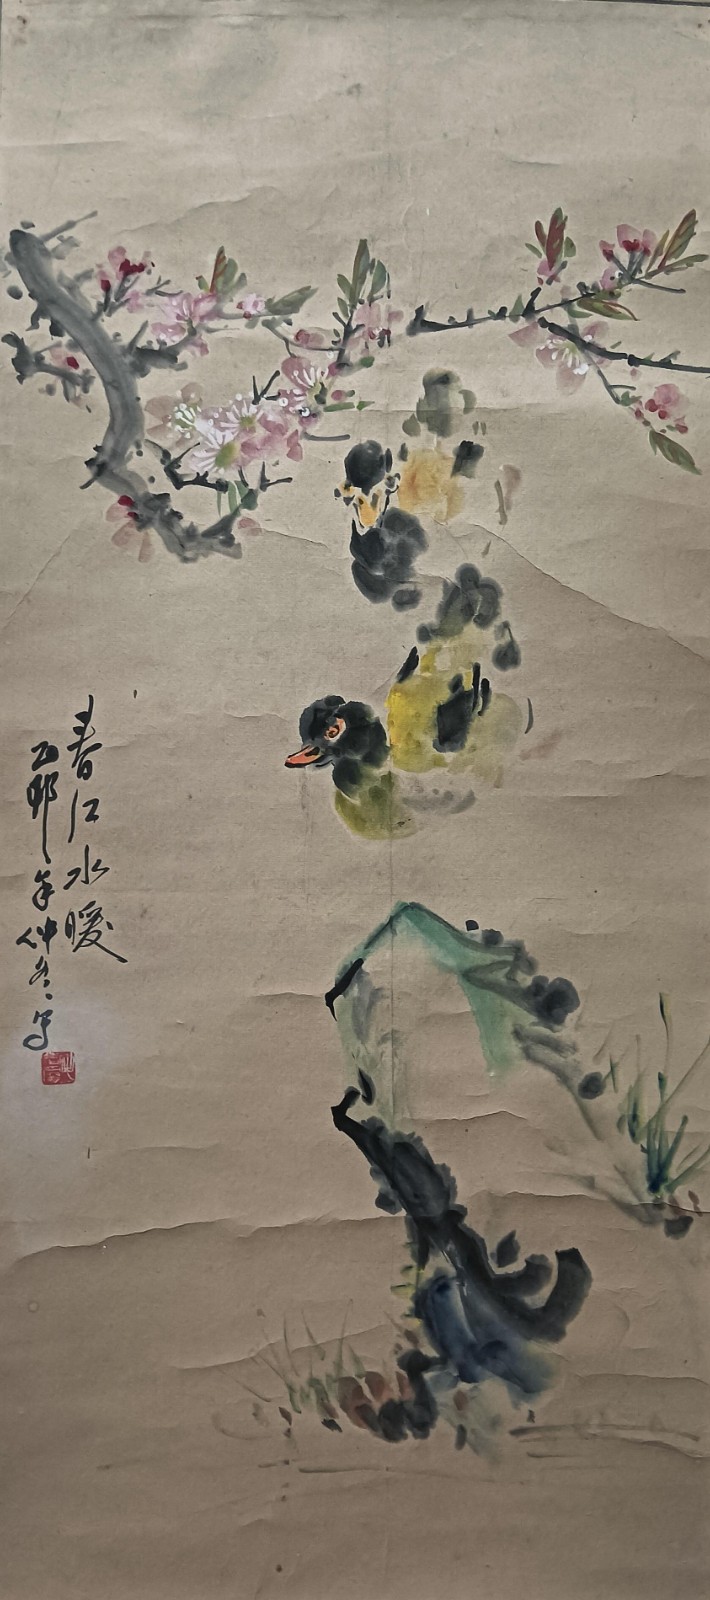 春江水暖
乙卯年仲冬写